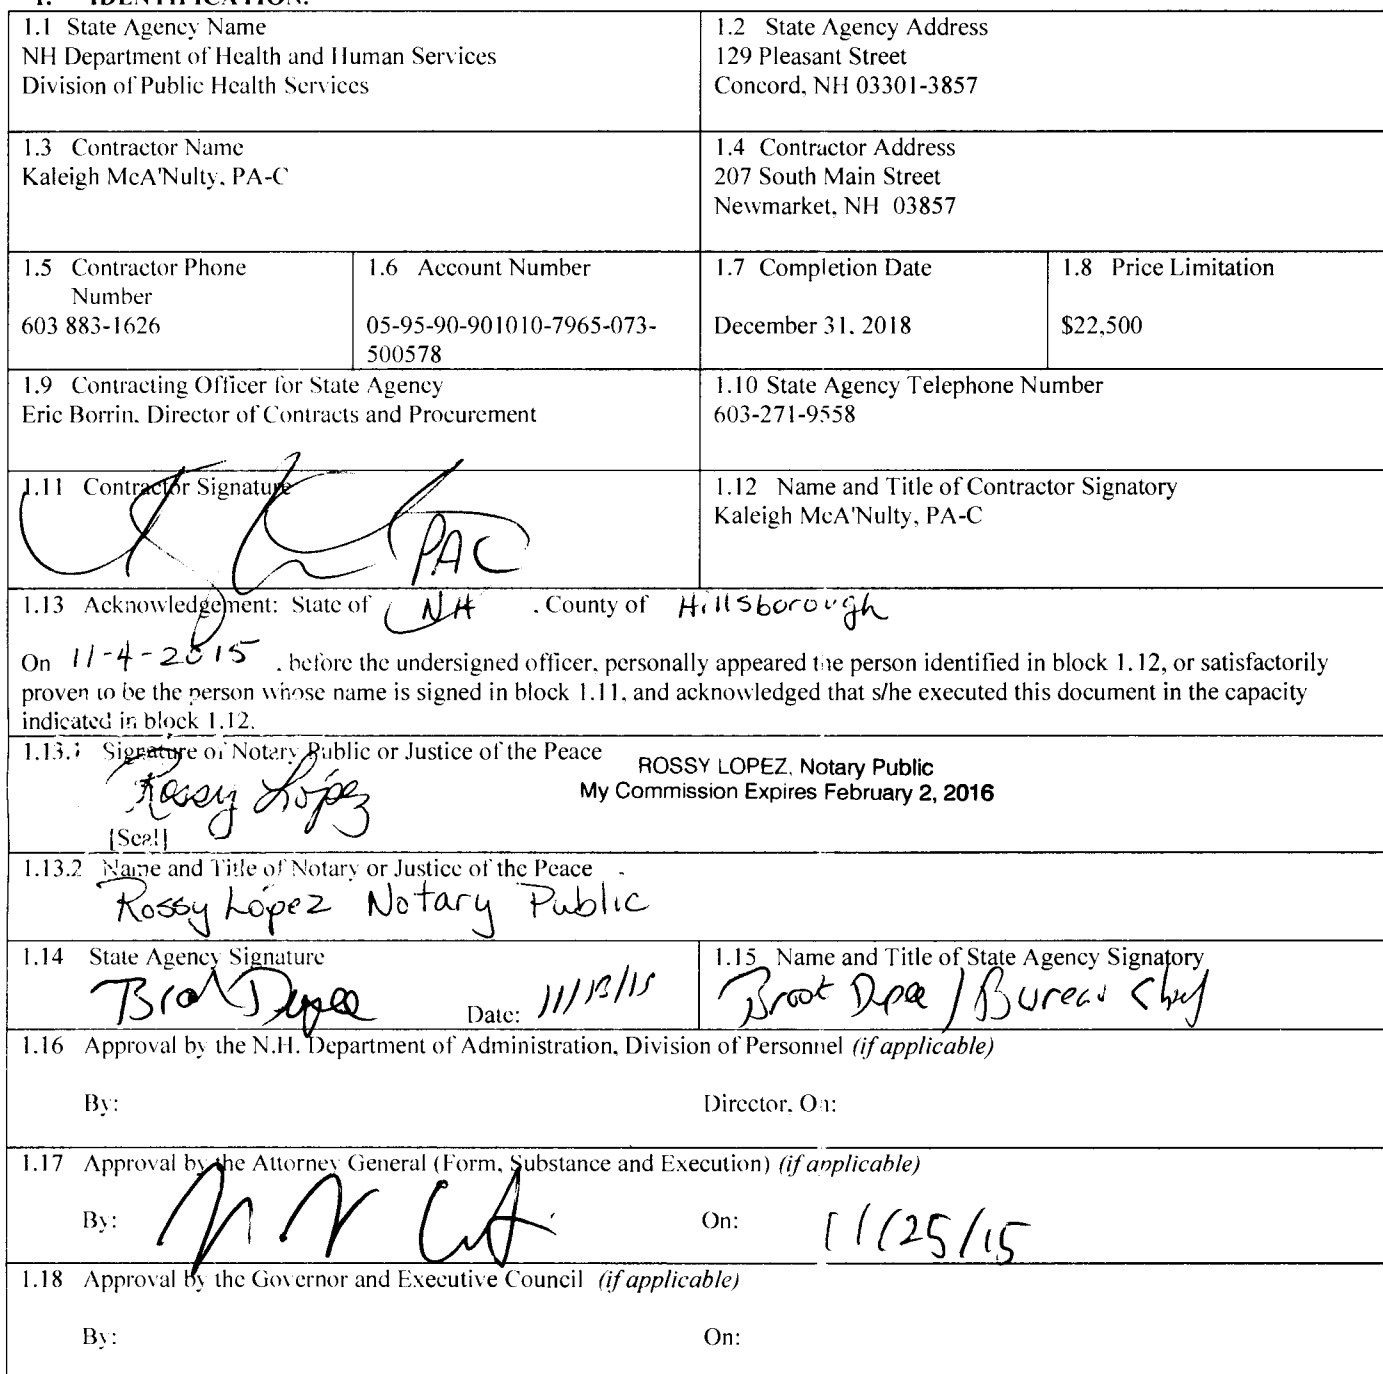 1. IDENTIFICATION.
1.1 State Agency Name
NH Department of Health and Human Services
Division of Public Health Services
1.2 State Agency Address
129 Pleasant Street
Concord, NH 03301-3857
1.3 Contractor Name
Kaleigh McA'Nulty, PA-C
1.4 Contractor Address
207 South Main Street
Newmarket, NH 03857
1.5 Contractor Phone
Number
603 883-1626
1.6 Account Number
05-95-90-901010-7965-073-
500578
1.7 Completion Date
December 31, 2018
1.8 Price Limitation
$22,500
1.9 Contracting Officer for State Agency
Eric Borrin, Director of Contracts and Procurement
1.10 State Agency Telephone Number
603-271-9558
1.11 Contractor Signature
PAC
1.12 Name and Title of Contractor Signatory
Kaleigh McA'Nulty, PA-C
1.13 Acknowledgement: State of NH , County of Hillsborough
On 11-4-2015 , before the undersigned officer, personally appeared the person identified in block 1.12, or satisfactorily
proven to be the person whose name is signed in block 1.11, and acknowledged that s/he executed this document in the capacity
indicated in block 1.12.
1.13.1 Signature of Notary Public or Justice of the Peace
ROSSY LOPEZ, Notary Public
My Commission Expires February 2, 2016
Rossy López
[Seal]
1.13.2 Name and Title of Notary or Justice of the Peace
Rossy López Notary Public
1.14 State Agency Signature
Date: 11/13/15
1.15 Name and Title of State Agency Signatory
/ Bureau Chief
1.16 Approval by the N.H. Department of Administration, Division of Personnel (if applicable)
By: Director, On:
1.17 Approval by the Attorney General (Form, Substance and Execution) (if applicable)
By: On: 11/25/15
1.18 Approval by the Governor and Executive Council (if applicable)
By: On: